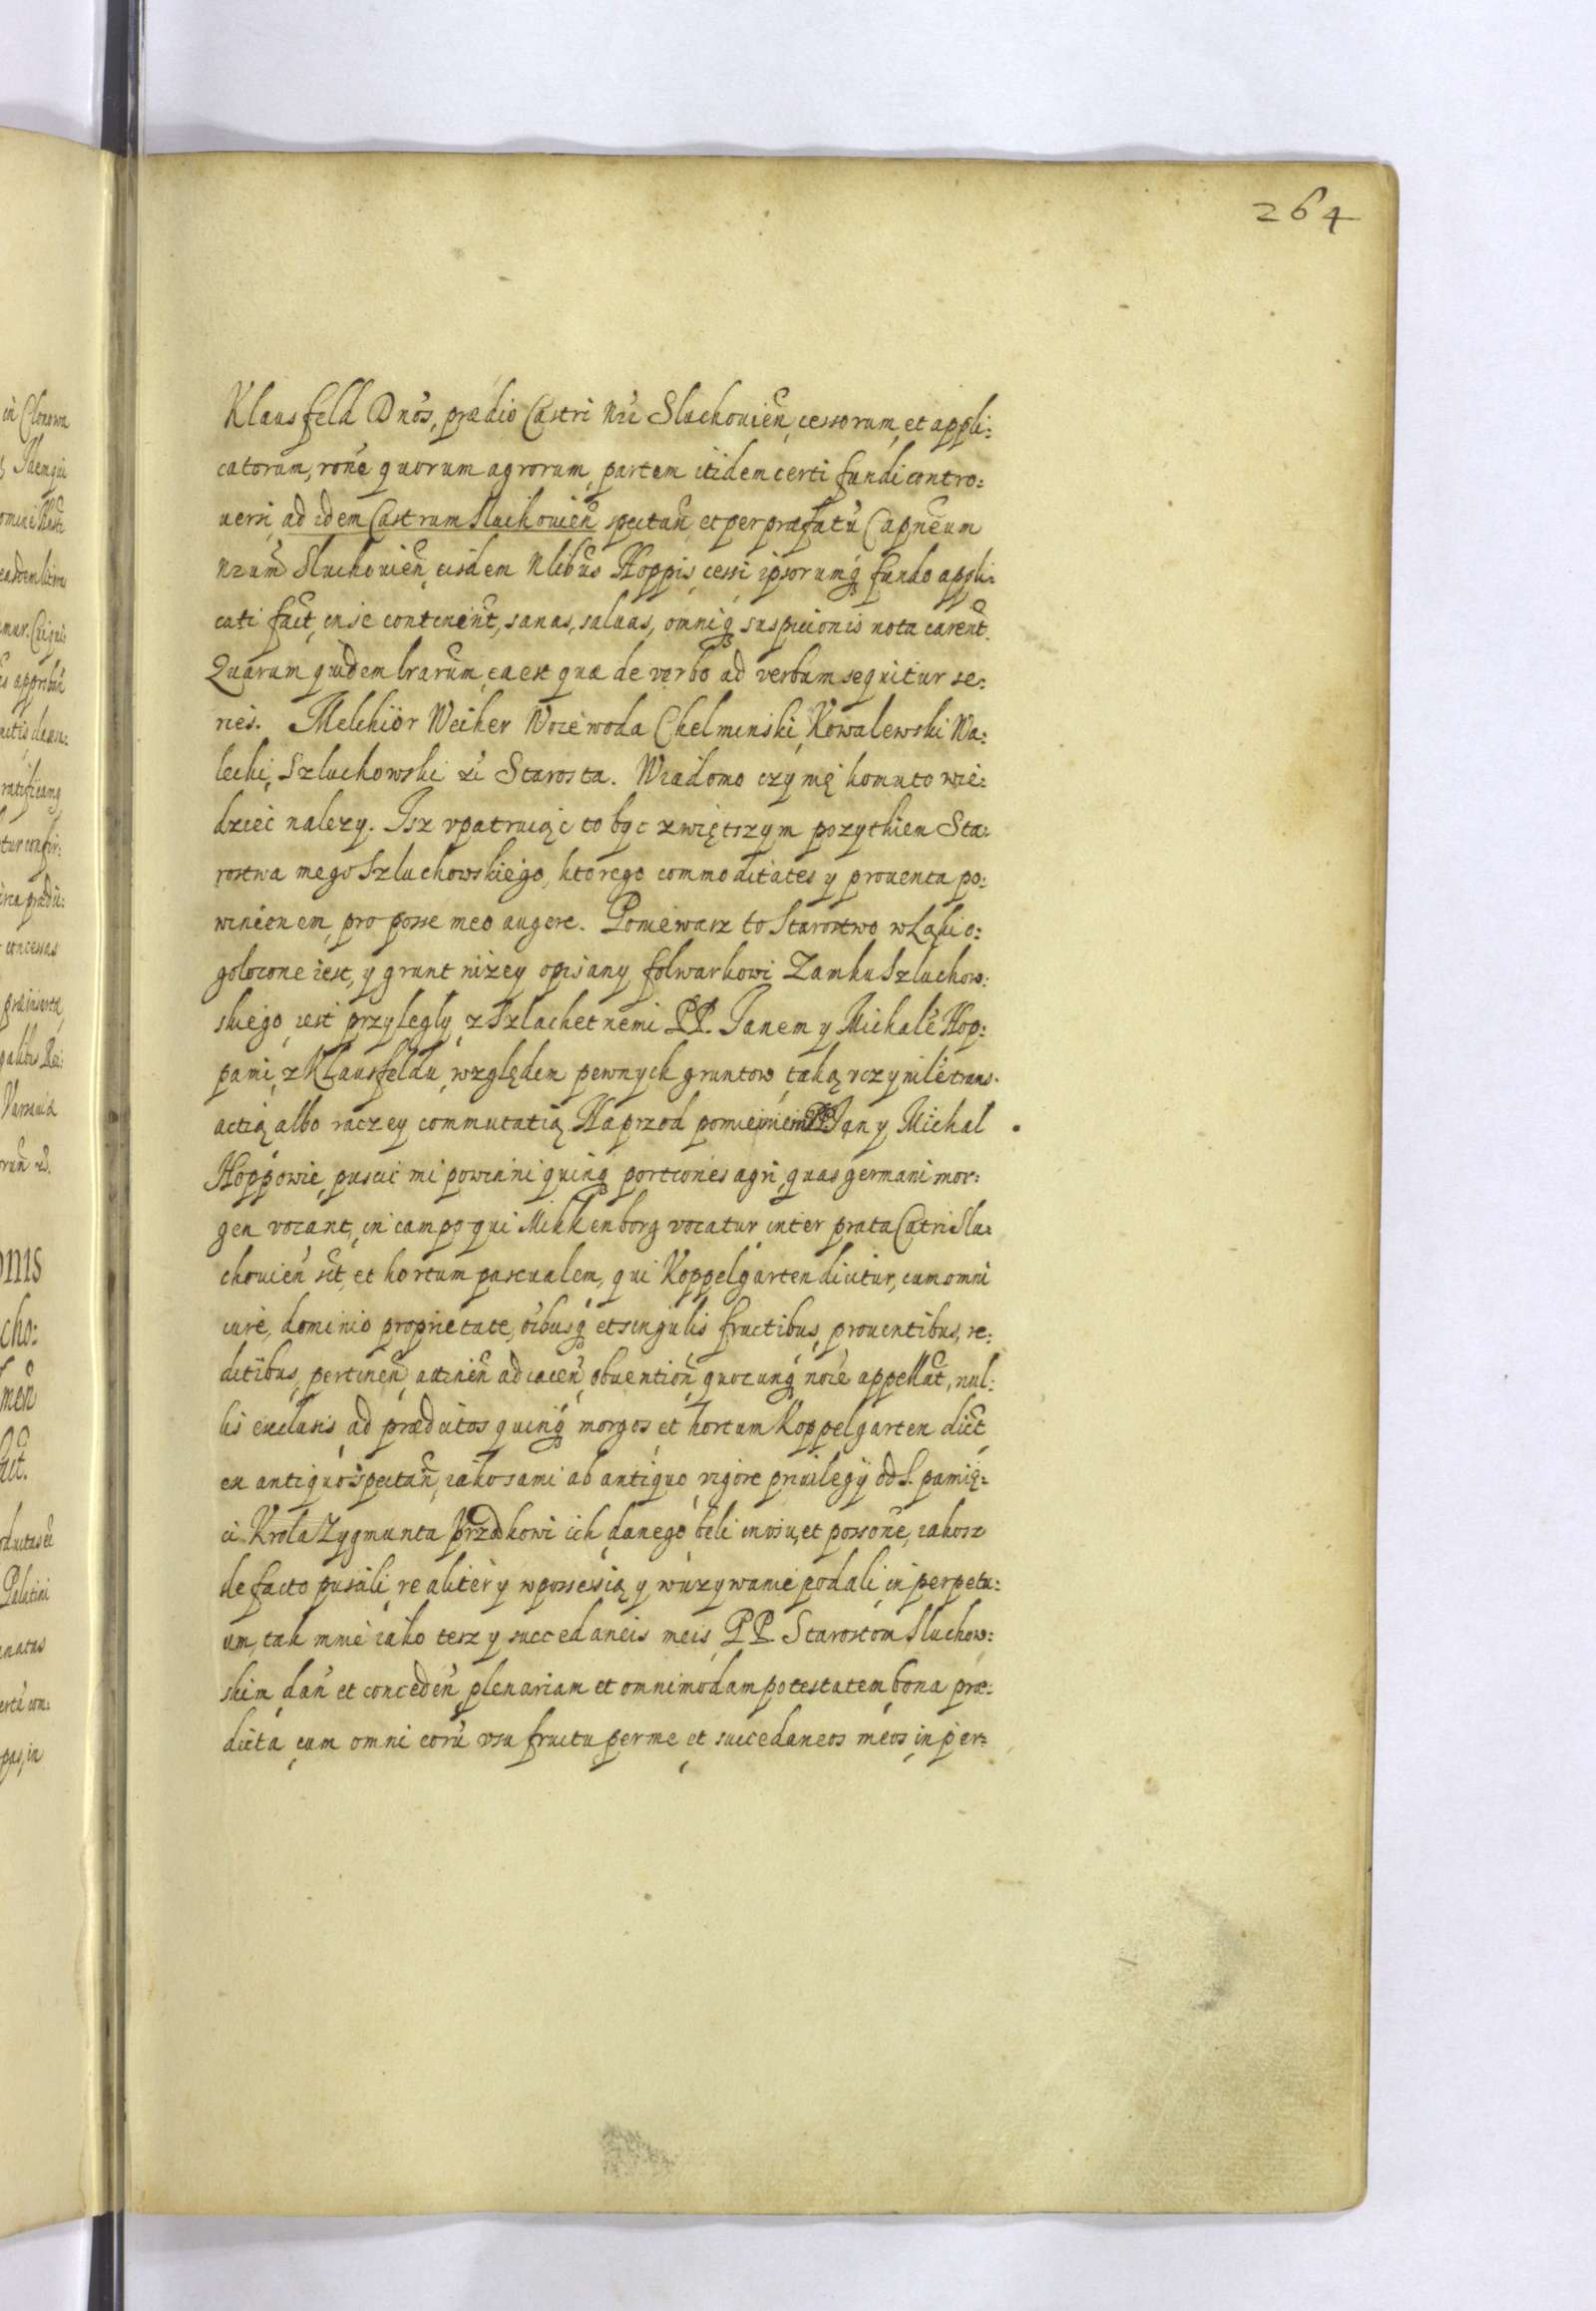 264
Klausfeld Dnos, prædio Castri Nri Sluchouien, cessorum, et appli:
catorum, rone quorum agrorum, partem itidem certi fundi contro:
uersi, ad idem Castrum Sluchouien spectan, et per præfatu Capneum
Nrum Sluchouien, eisdem Nlibus Hoppis, cessi ipsorumq fundo appli:
cati fact, in se continent, sanas, saluas, omniq suspicionis nota carent.
Quarum quidem lrarum, ea est quæ de verbo ad verbum sequitur se:
ries. Melchior Weiher Woiewoda Chelminski, Kowalewski Wa:
lecki, Szluchowski zć Starosta. Wiadomo czynię komu to wie:
dzieć nalezy. Isz vpatruiąc to byc zwiętszym pozytkiem Sta:
rostwa mego Szluchowskiego, ktorego commoditates y prouenta po:
winienem, pro posse meo augere. Poniewasz to Starostwo w Łąki o:
golocone iest, y grunt nizey opisany folwarkowi Zamku Szluchow:
skiego, iest przyległy, z Szlachetnemi PP. Janem y Michałe Hop:
pami, z Klausfeldu, względem pewnych gruntow, taką vczynile trans.
actią albo raczey commutatią Naprzod pomienieni PP. Jan y Michal
Hoppowie, puscić mi powinni quinq portiones agri, quas germani mor:
gen vocant, in campo qui Mikkenborg vocatur, inter prata Catri Slu:
chouien sit, et hortum pascualem, qui Koppelgarten dicitur, cum omni
iure, dominio proprietate, oibusq et singulis fructibus, prouentibus, re:
ditibus, pertinen, attinen adiacen, obuention, quocunq noie appellat, nul:
lis exclusis, ad prædictos quinq morgos et hortum Koppelgarten dict
ex antiquo spectan, iako sami ab antiquo, vigore priuilegÿ od S. pamię:
ci Krola Zygmunta Przodkowi ich danego beli in vsu, et possone, iakosz
de facto puscili, realiter y w possessią y w uzywanie podali, in perpetu:
um, tak mnie iako tesz y succedaneis meis, PP. Starostom Sluchow:
skim, dan et conceden, plenariam et omnimodam potestatem, bona præ:
dicta, cum omni eoru vsu fructu per me, et succedaneos meos, in per: